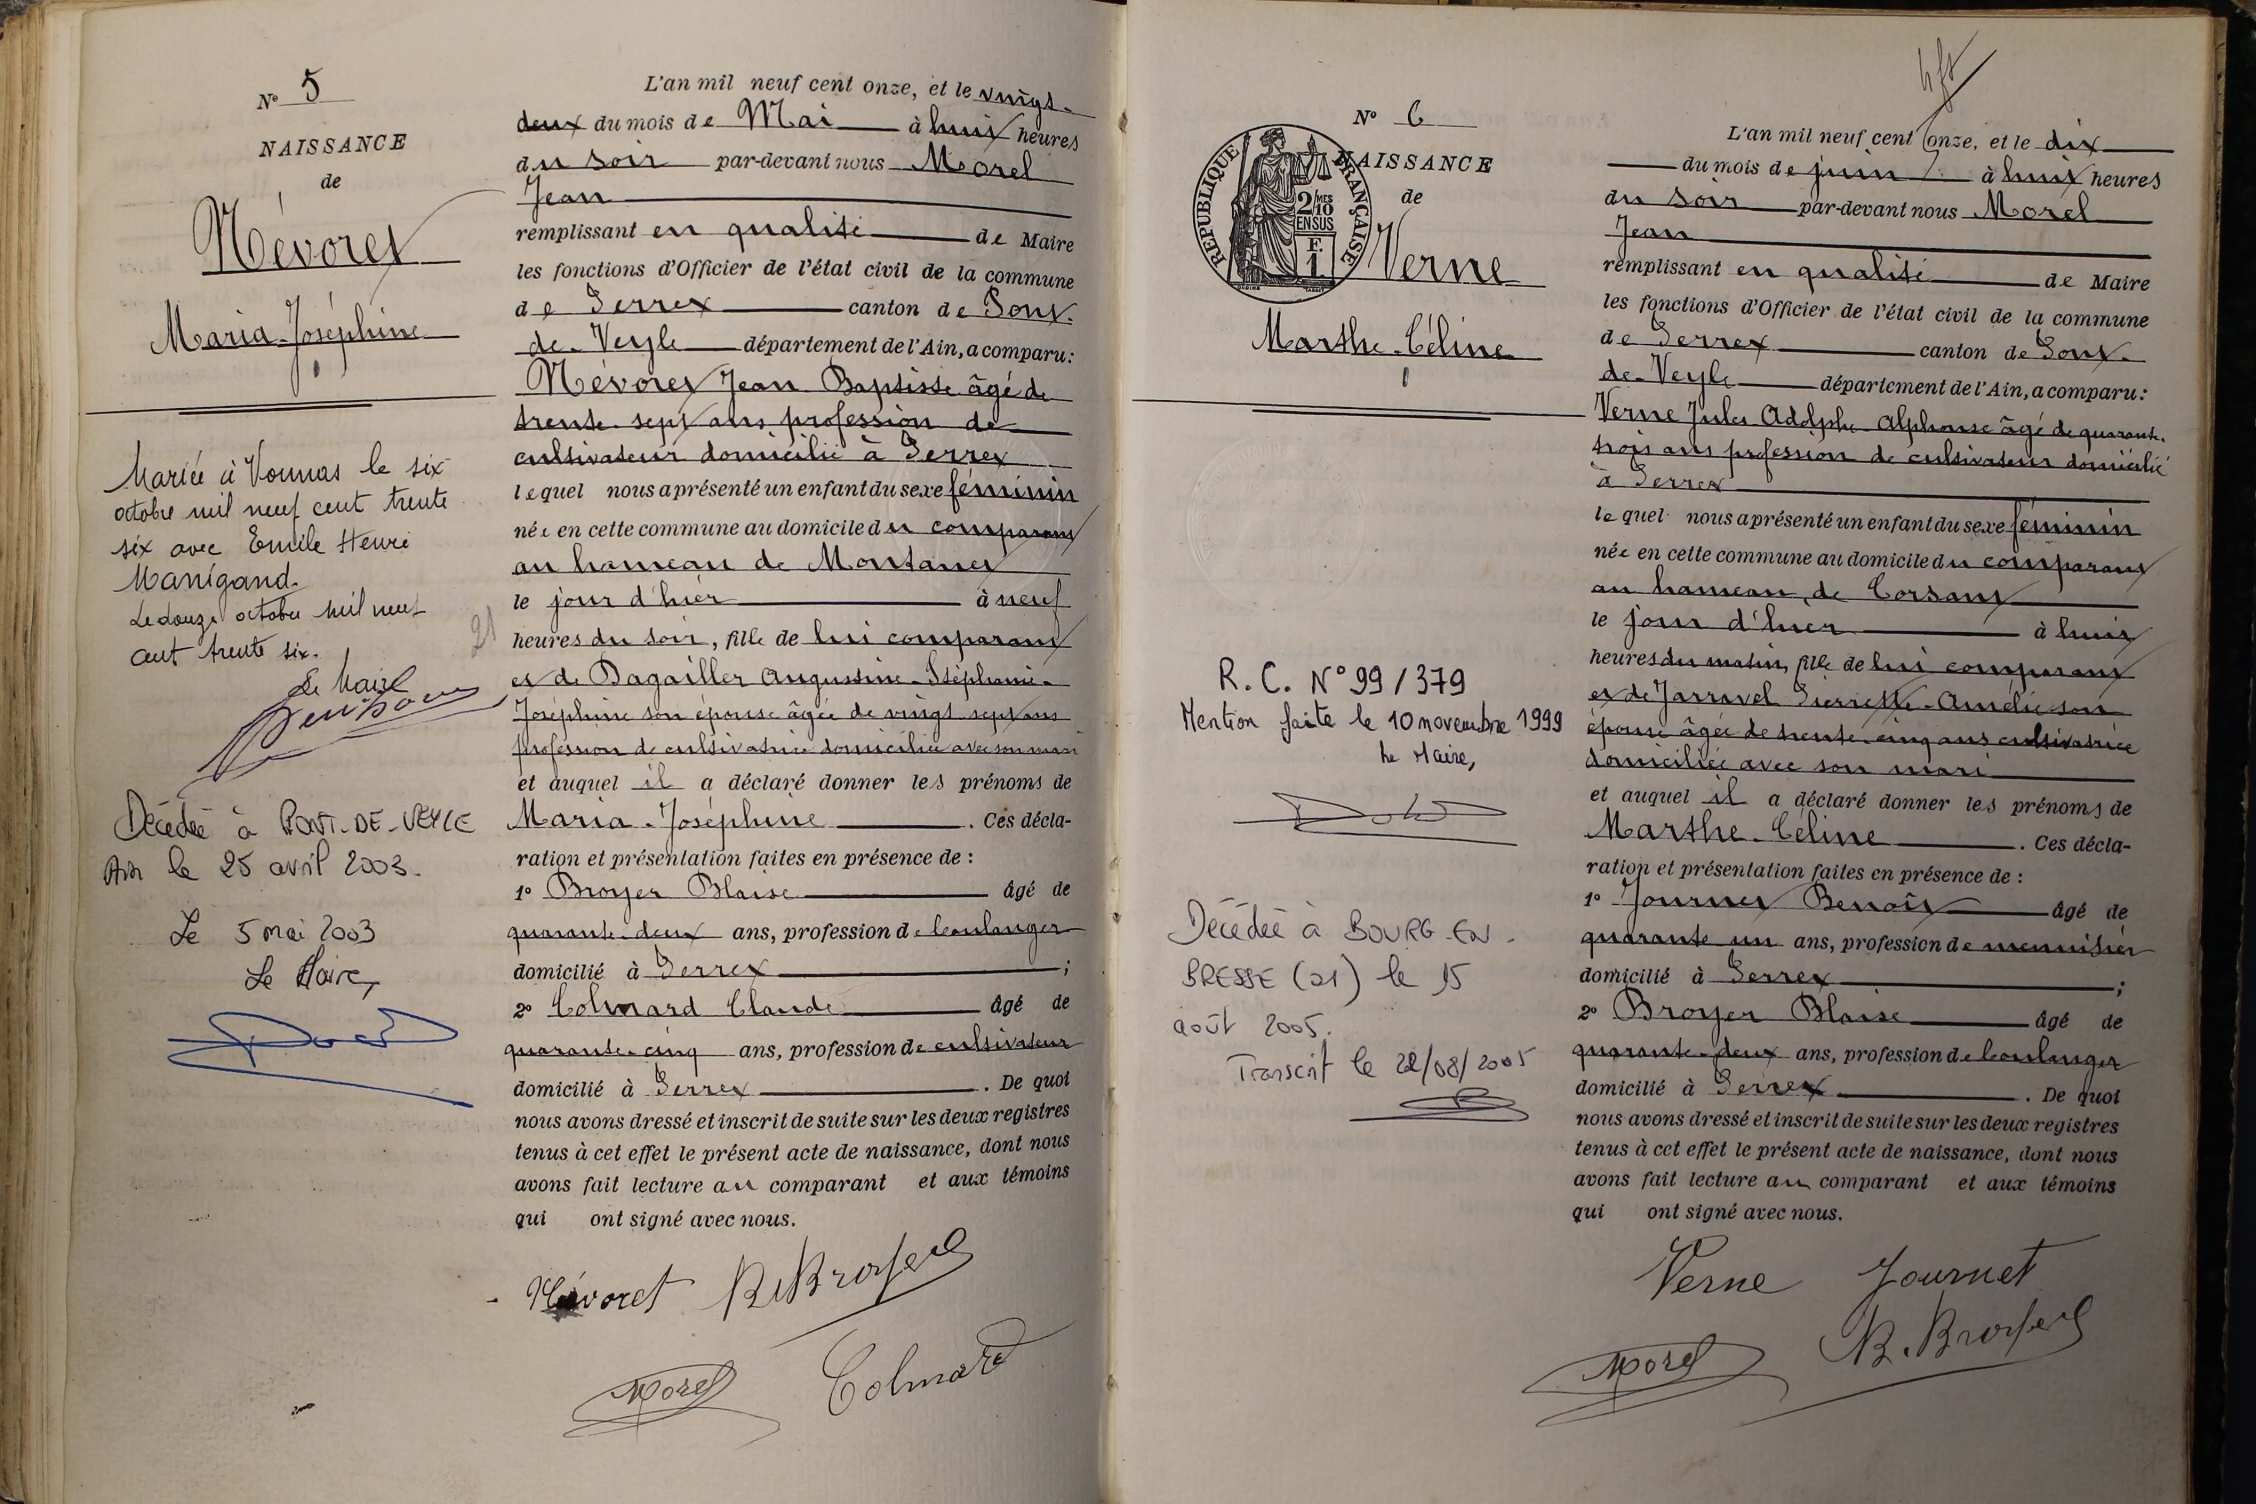 N° 5
NAISSANCE
de
Névoret
Maria-Joséphine
Mariée à Vonnas le six
octobre mil neuf cent trente
six avec Emile Henri
Manigand.
Le douze octobre mil neuf
cent trente six.
Le Maire
Décédée à PONT-DE-VEYLE
Ain le 25 avril 2003.
Le 5 mai 2003
Le Maire,
L'an mil neuf cent onze, et le vingt-
deux du mois de Mai à huit heures
du soir par-devant nous Morel
Jean
remplissant en qualité de Maire
les fonctions d'Officier de l'état civil de la commune
de Perrex canton de Pont-
de-Veyle département de l'Ain, a comparu:
Névoret Jean Baptiste âgé de
trente-sept ans profession de
cultivateur domicilié à Perrex
lequel nous a présenté un enfant du sexe féminin
née en cette commune au domicile du comparant
au hameau de Montanet
le jour d'hier à neuf
heures du soir, fille de lui comparant
et de Dagailler Augustine-Stéphanie-
Joséphine son épouse âgée de vingt sept ans
profession de cultivatrice domiciliée avec son mari
et auquel il a déclaré donner les prénoms de
Maria-Joséphine. Ces décla-
ration et présentation faites en présence de :
1° Broyer Blaise âgé de
quarante-deux ans, profession de boulanger
domicilié à Perrex ;
2° Colmard Claude âgé de
quarante-cinq ans, profession de cultivateur
domicilié à Perrex. De quoi
nous avons dressé et inscrit de suite sur les deux registres
tenus à cet effet le présent acte de naissance, dont nous
avons fait lecture au comparant et aux témoins
qui ont signé avec nous.
Névoret B. Broyer
Morel Colmard
N° 6
NAISSANCE
de
REPUBLIQUE FRANÇAISE
2/10 MES
EN SUS
F.
1
Verne
Marthe-Céline
R.C. N° 99/379
Mention faite le 10 novembre 1999
Le Maire,
Décédée à BOURG-EN-
BRESSE (01) le 15
août 2005.
Transcrit le 22/08/2005
L'an mil neuf cent onze, et le dix
du mois de juin à huit heures
du soir par-devant nous Morel
Jean
remplissant en qualité de Maire
les fonctions d'Officier de l'état civil de la commune
de Perrex canton de Pont-
de-Veyle département de l'Ain, a comparu:
Verne Jules Adolphe Alphonse âgé de quarante-
trois ans profession de cultivateur domicilié
à Perrex
lequel nous a présenté un enfant du sexe féminin
née en cette commune au domicile du comparant
au hameau de Corsant
le jour d'hier à huit
heures du matin, fille de lui comparant
et de Jarravel Pierrette-Amélie son
épouse âgée de trente-cinq ans cultivatrice
domiciliée avec son mari
et auquel il a déclaré donner les prénoms de
Marthe-Céline. Ces décla-
ration et présentation faites en présence de :
1° Journet Benoît âgé de
quarante un ans, profession de menuisier
domicilié à Perrex ;
2° Broyer Blaise âgé de
quarante-deux ans, profession de boulanger
domicilié à Perrex. De quoi
nous avons dressé et inscrit de suite sur les deux registres
tenus à cet effet le présent acte de naissance, dont nous
avons fait lecture au comparant et aux témoins
qui ont signé avec nous.
Verne Journet
Morel B. Broyer